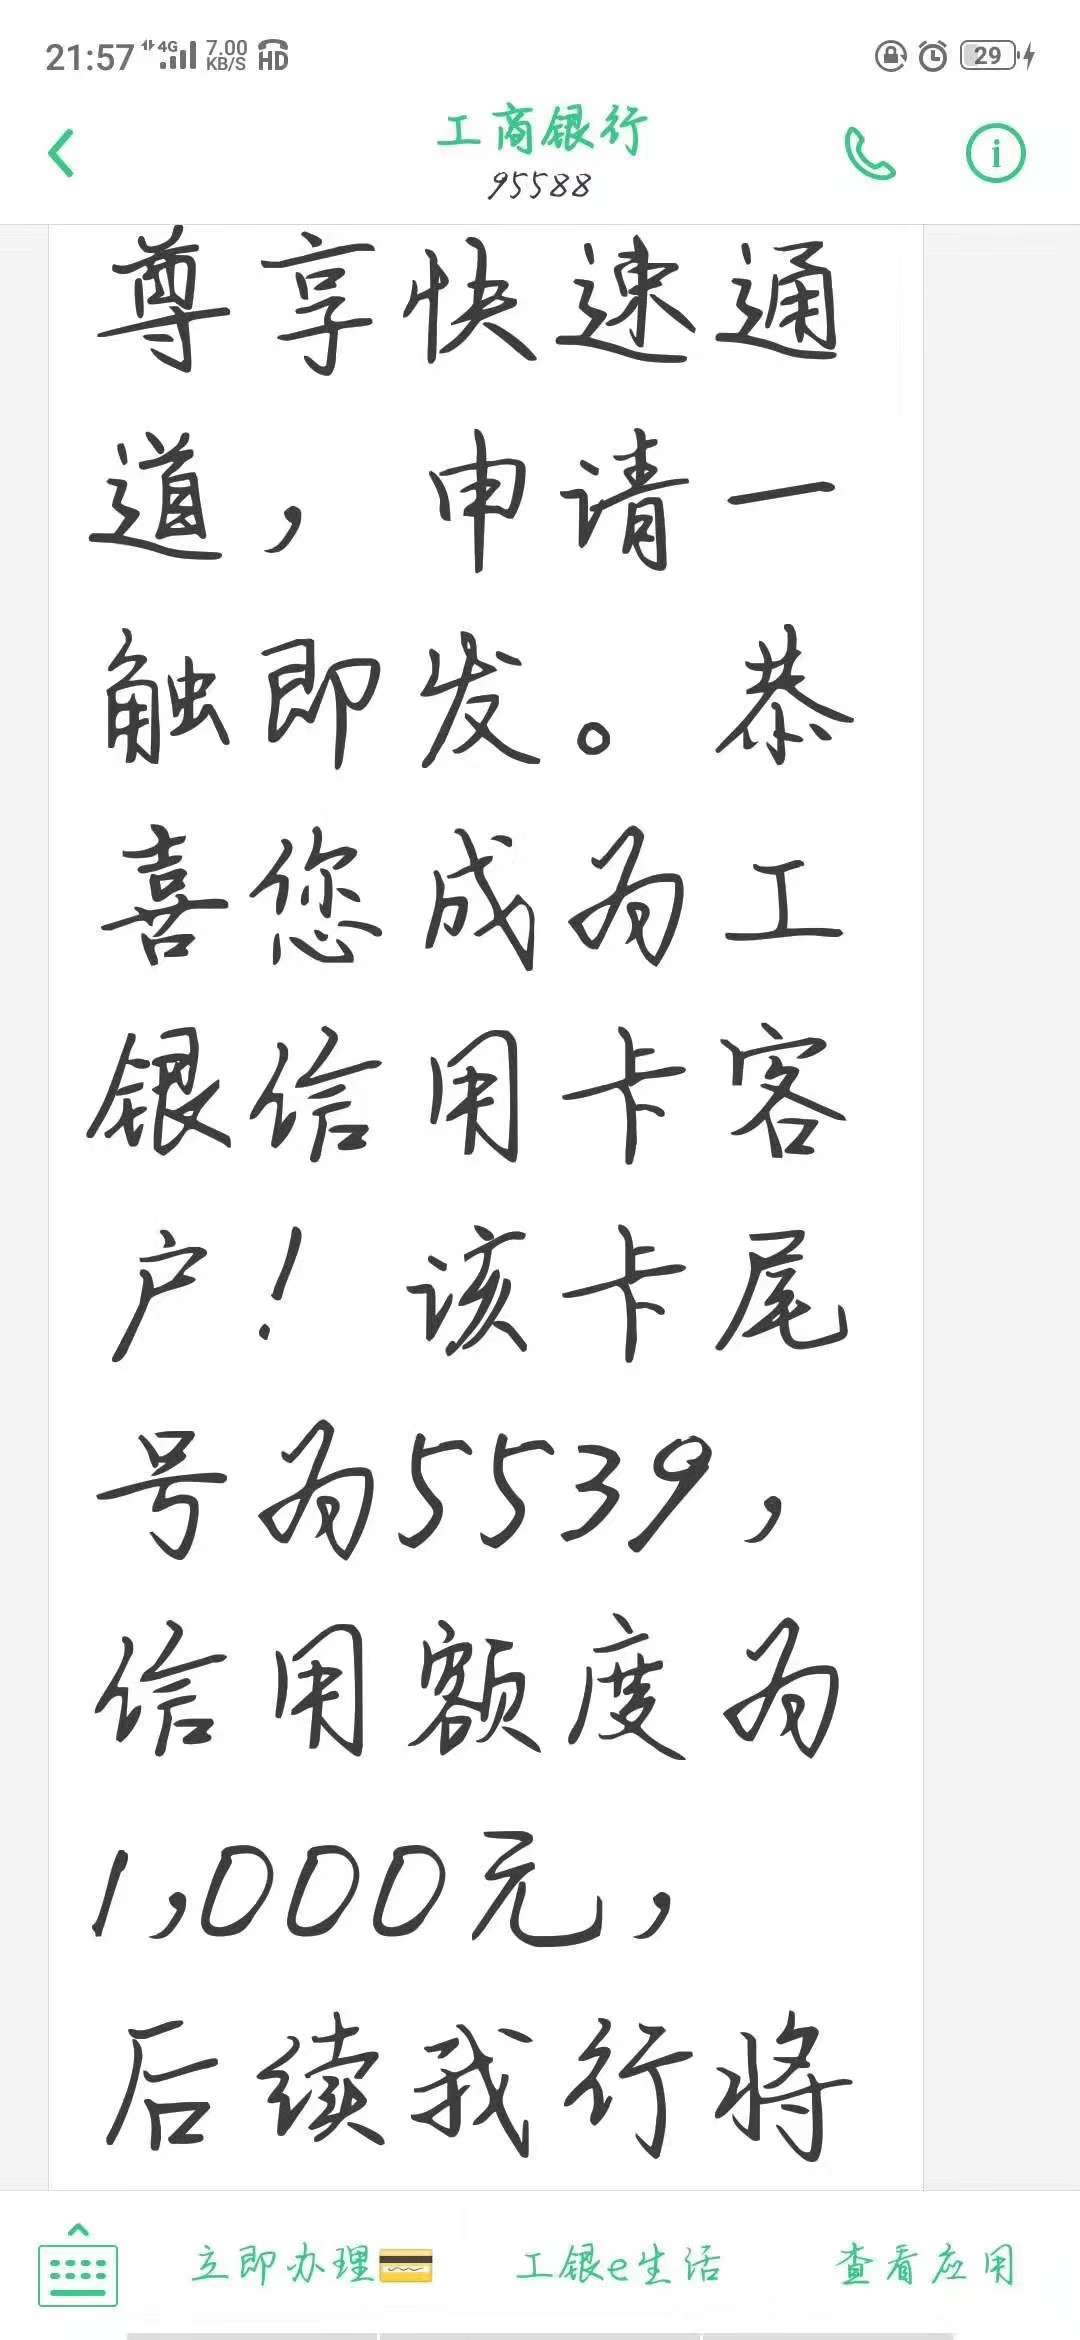 21:57 4G 7.00 KB/S HD 29
工商银行
95588
尊享快速通
道，申请一
触即发。恭
喜您成为工
银信用卡客
户！该卡尾
号为5539，
信用额度为
1,000元，
后续我行将
立即办理💳 工银e生活 查看应用